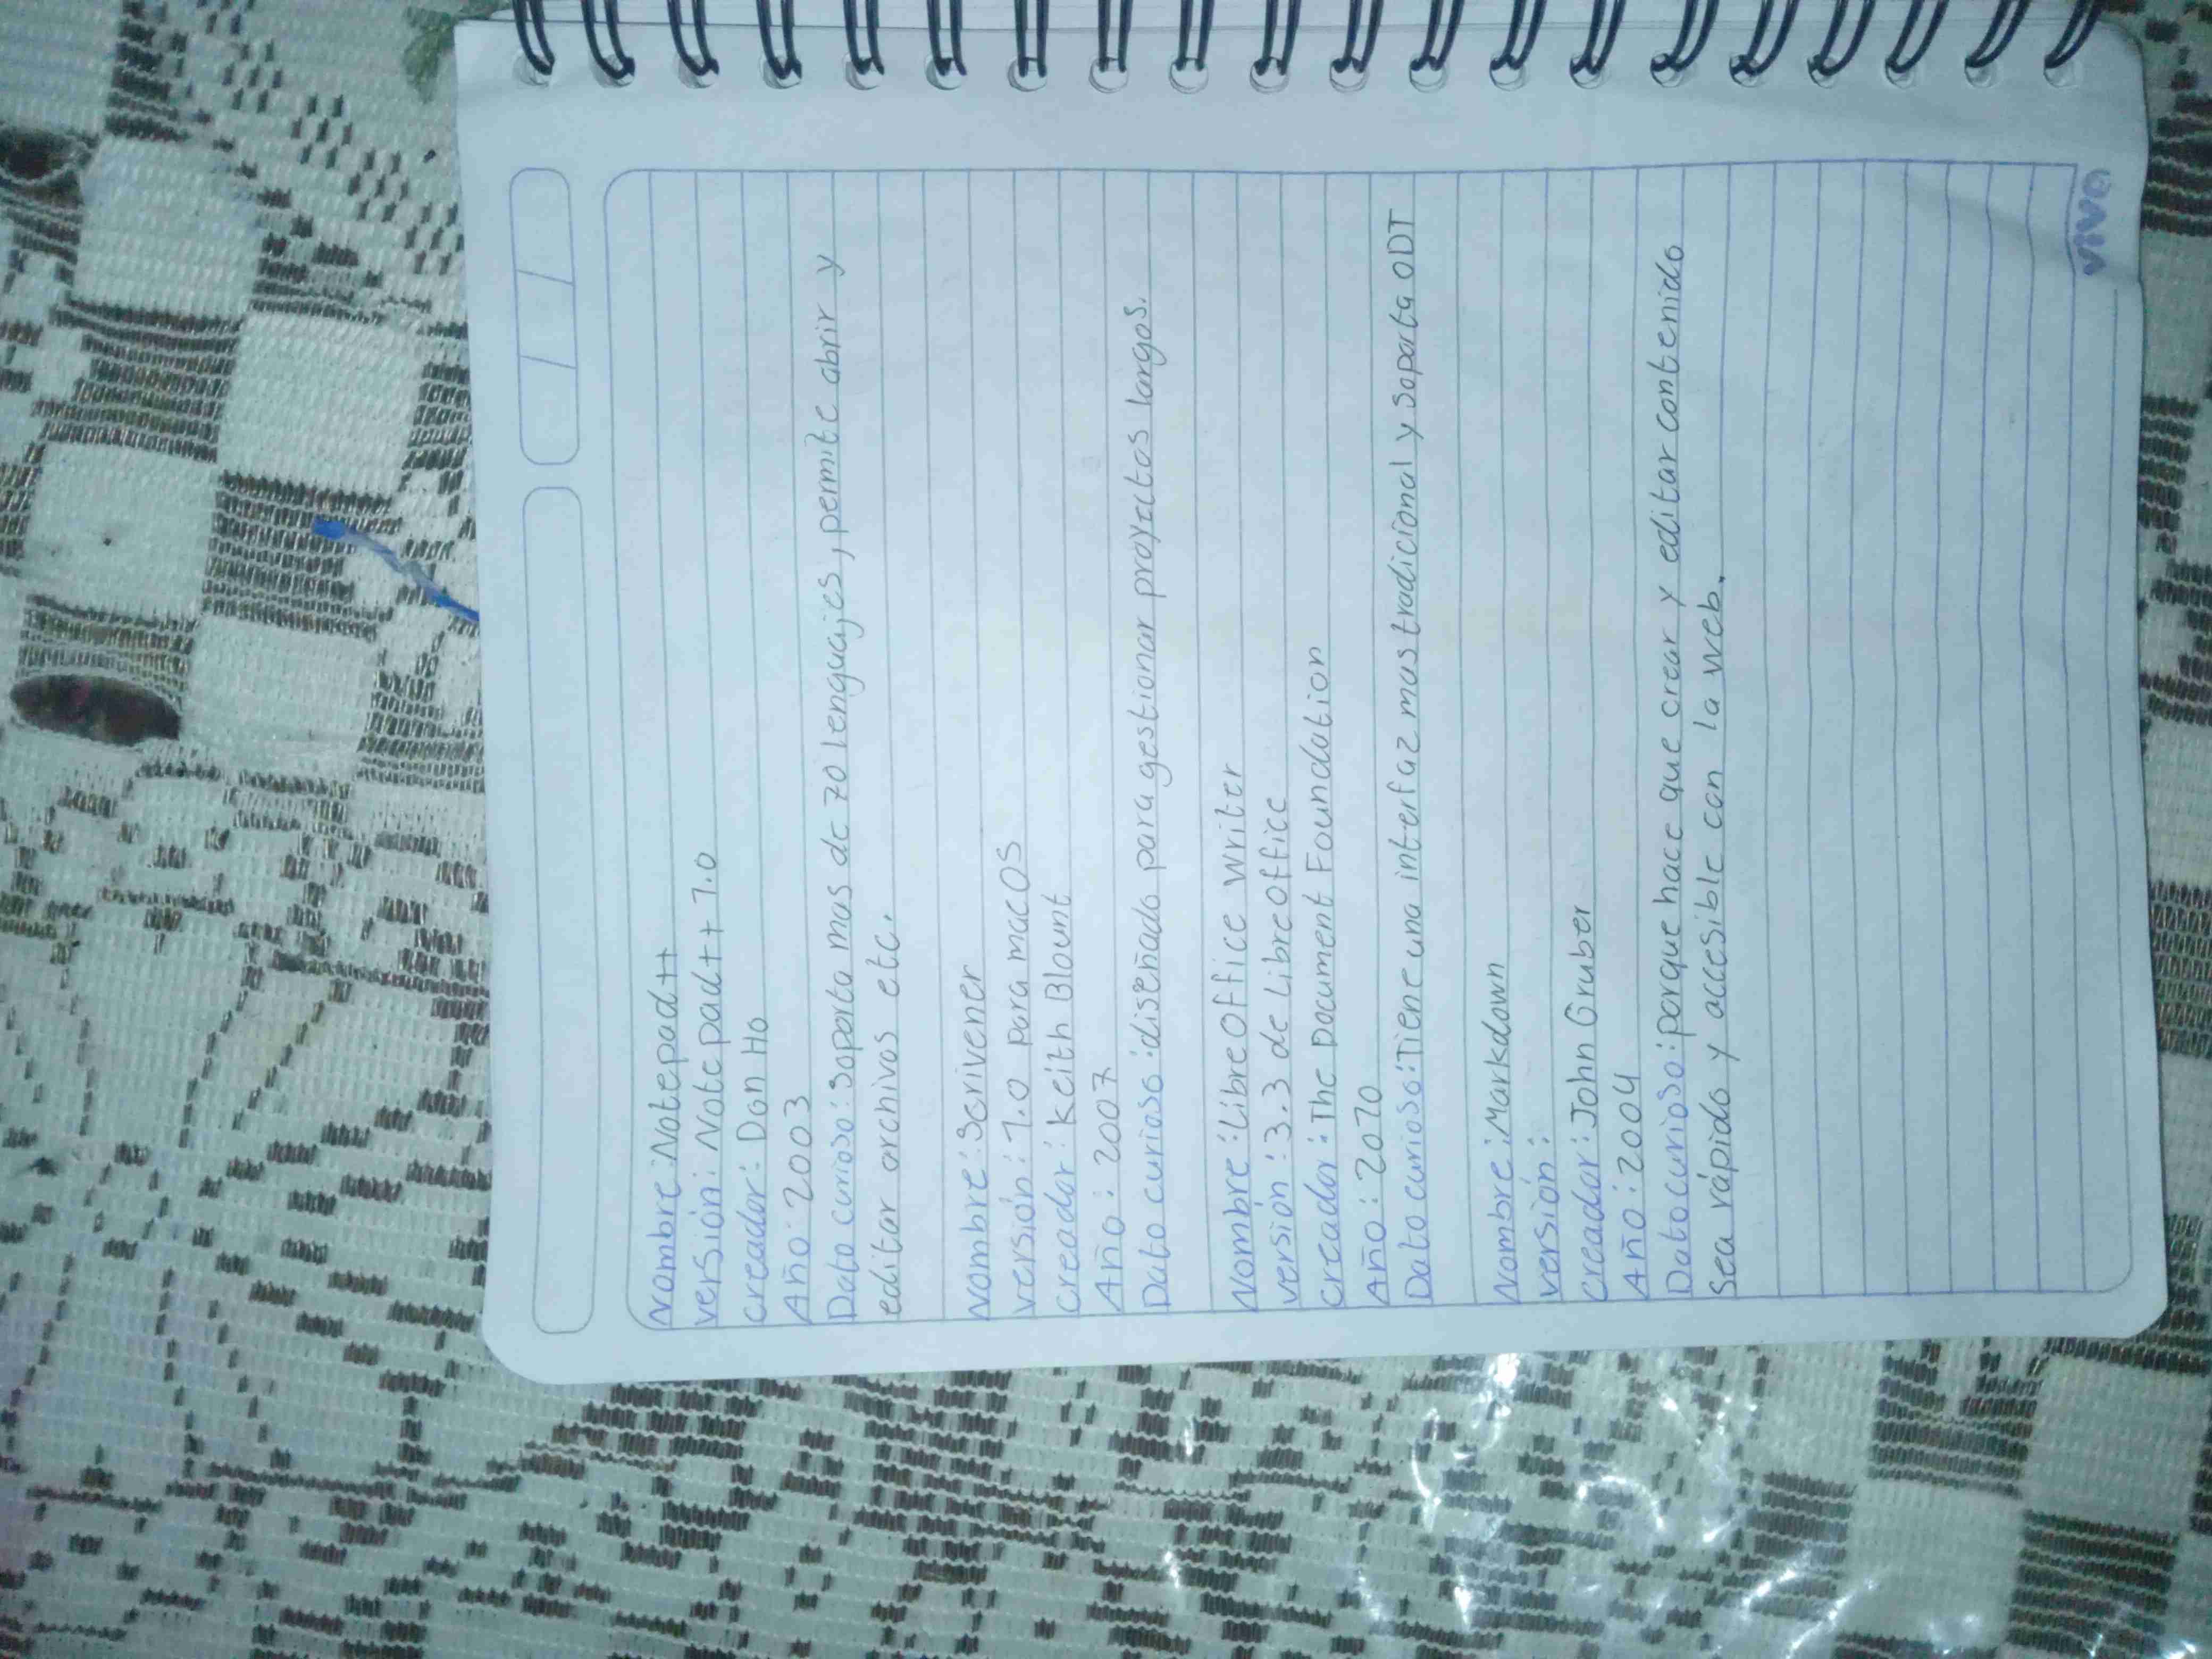 Nombre: Notepad++
versión: Notepad++ 1.0
creador: Don Ho
Año: 2003
Dato curioso: soporta mas de 70 lenguajes, permite abrir y
editar archivos etc.
Nombre: Scrivener
versión: 1.0 para macOS
creador: Keith Blount
Año: 2007
Dato curioso: diseñado para gestionar proyectos largos.
Nombre: LibreOffice Writer
versión: 3.3 de LibreOffice
creador: The Document Foundation
Año: 2010
Dato curioso: Tiene una interfaz mas tradicional y soporta ODT
Nombre: Markdown
versión:
creador: John Gruber
Año: 2004
Dato curioso: porque hace que crear y editar contenido
sea rápido y accesible con la web.
viva